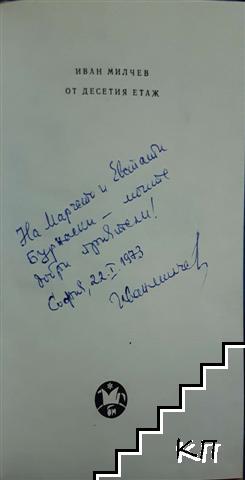 ИВАН МИЛЧЕВ
ОТ ДЕСЕТИЯ ЕТАЖ
На Марчето и Евстати
Бурнаски – моите
добри приятели!
София, 22.I.1973
Иван Милчев
БП
КП